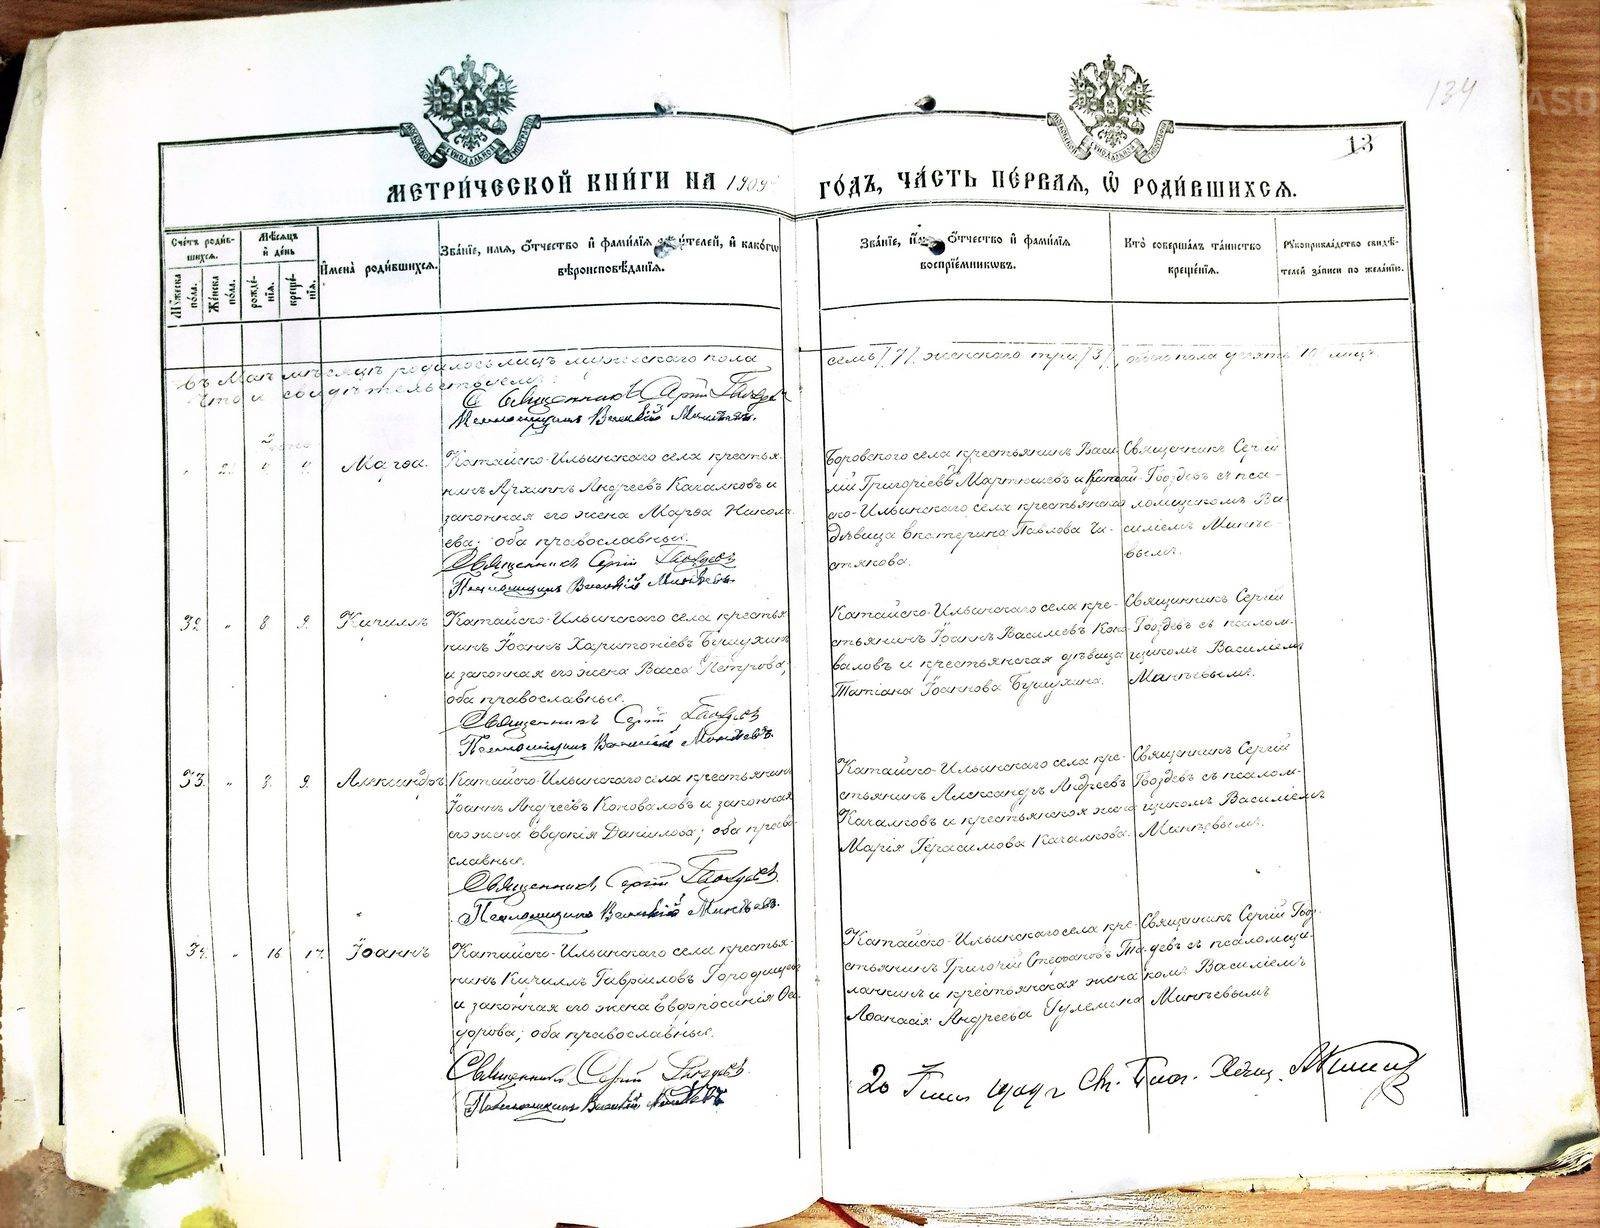 134
13
МОСКОВСКОЙ СѴНОДАЛЬНОЙ ТИПОГРАФІИ
МОСКОВСКОЙ СѴНОДАЛЬНОЙ ТИПОГРАФІИ
МЕТРИ́ЧЕСКОЙ КНИ́ГИ НА 1909 ГО́ДЪ, ЧА́СТЬ ПЕ́РВАЯ, Ѿ РОДИ́ВШИХСЯ.
Сче́тъ роди́в-
шихся.
Му́жеска по́ла.
Же́нска по́ла.
Мѣ́сяцъ
и҆ де́нь
рожде́-
нїя.
креще́-
нїя.
И҆мена̀ роди́вшихся.
Зва́нїе, и҆мя, ѻ҆́тчество и҆ фами́лїя роди́телей, и҆ како́гѡ
вѣроисповѣ́данїя.
Зва́нїе, и҆́мя, ѻ҆́тчество и҆ фами́лїя
воспрїе́мникѡвъ.
Кто̀ соверша́лъ та́инство
креще́нїя.
Рꙋкоприкла́дство свидѣ́-
телей за́писи по жела́нїю.
Въ Маѣ мѣсяцѣ родилось лицъ мужескаго пола семь /7/ женскаго три /3/, обоего пола десять 10 лицъ
Что и свидѣтельствуемъ:
Священникъ Сергій Гвоздевъ
Псаломщикъ Василій Минѣевъ.
Марѳа.
Катайско-Ильинскаго села крестья-
нинъ Архиппъ Андреевъ Качалковъ и
законная его жена Марѳа Никола-
ева; оба православные.
Священникъ Сергій Гвоздевъ
Псаломщикъ Василій Минѣевъ.
Боровского села крестьянинъ Васи-
лій Григоріевъ Мартюшевъ и Катай-
ско-Ильинскаго села крестьянская
дѣвица Екатерина Павлова Чи-
стякова.
Священникъ Сергій
Гвоздевъ съ пса-
ломщикомъ Ва-
силіемъ Минѣе-
вымъ.
32 " 8 9. Кириллъ
Катайско-Ильинскаго села крестья-
нинъ Іоаннъ Харитоніевъ Бушухинъ
и законная его жена Васса Петрова;
оба православные.
Священникъ Сергій Гвоздевъ
Псаломщикъ Василій Минѣевъ
Катайско-Ильинскаго села кре-
стьянинъ Іоаннъ Василіевъ Коно-
валовъ и крестьянская дѣвица
Татіана Іоаннова Бушухина.
Священникъ Сергій
Гвоздевъ съ псалом-
щикомъ Василіемъ
Минѣевымъ.
33. " 8. 9. Александръ
Катайско-Ильинскаго села крестьянинъ
Іоаннъ Андреевъ Коноваловъ и законная
его жена Евдокія Даніилова; оба право-
славные.
Священникъ Сергій Гвоздевъ.
Псаломщикъ Василій Минѣевъ.
Катайско-Ильинскаго села кре-
стьянинъ Александръ Андреевъ
Качалковъ и крестьянская жена
Марія Герасимова Качалкова.
Священникъ Сергій
Гвоздевъ съ псалом-
щикомъ Василіемъ
Минѣевымъ.
34. " 16 17. Іоаннъ
Катайско-Ильинскаго села крестья-
нинъ Кириллъ Гавріиловъ Городищевъ
и законная его жена Евфросинія Ѳео-
дорова; оба православные.
Священникъ Сергій Гвоздевъ.
Псаломщикъ Василій Минѣевъ
Катайско-Ильинскаго села кре-
стьянинъ Григорій Стефановъ
и крестьянская жена
Аѳанасія Андреева
Священникъ Сергій Гвоз-
девъ съ псаломщи-
комъ Василіемъ
Минѣевымъ
20